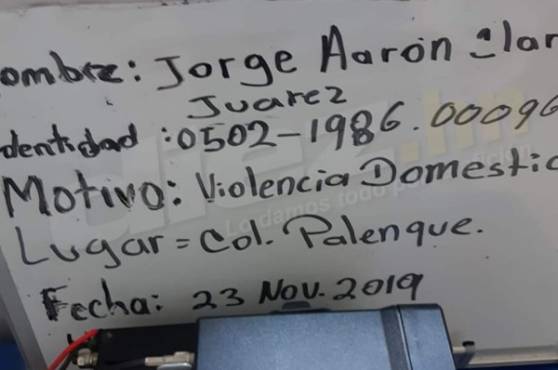 ombre: Jorge Aaron Clar
Juarez
dentidad: 0502-1986.00096
Motivo: Violencia Domestic
Lugar = Col. Palenque.
Fecha: 23 Nov. 2019
diez.hn
Lo damos todo por